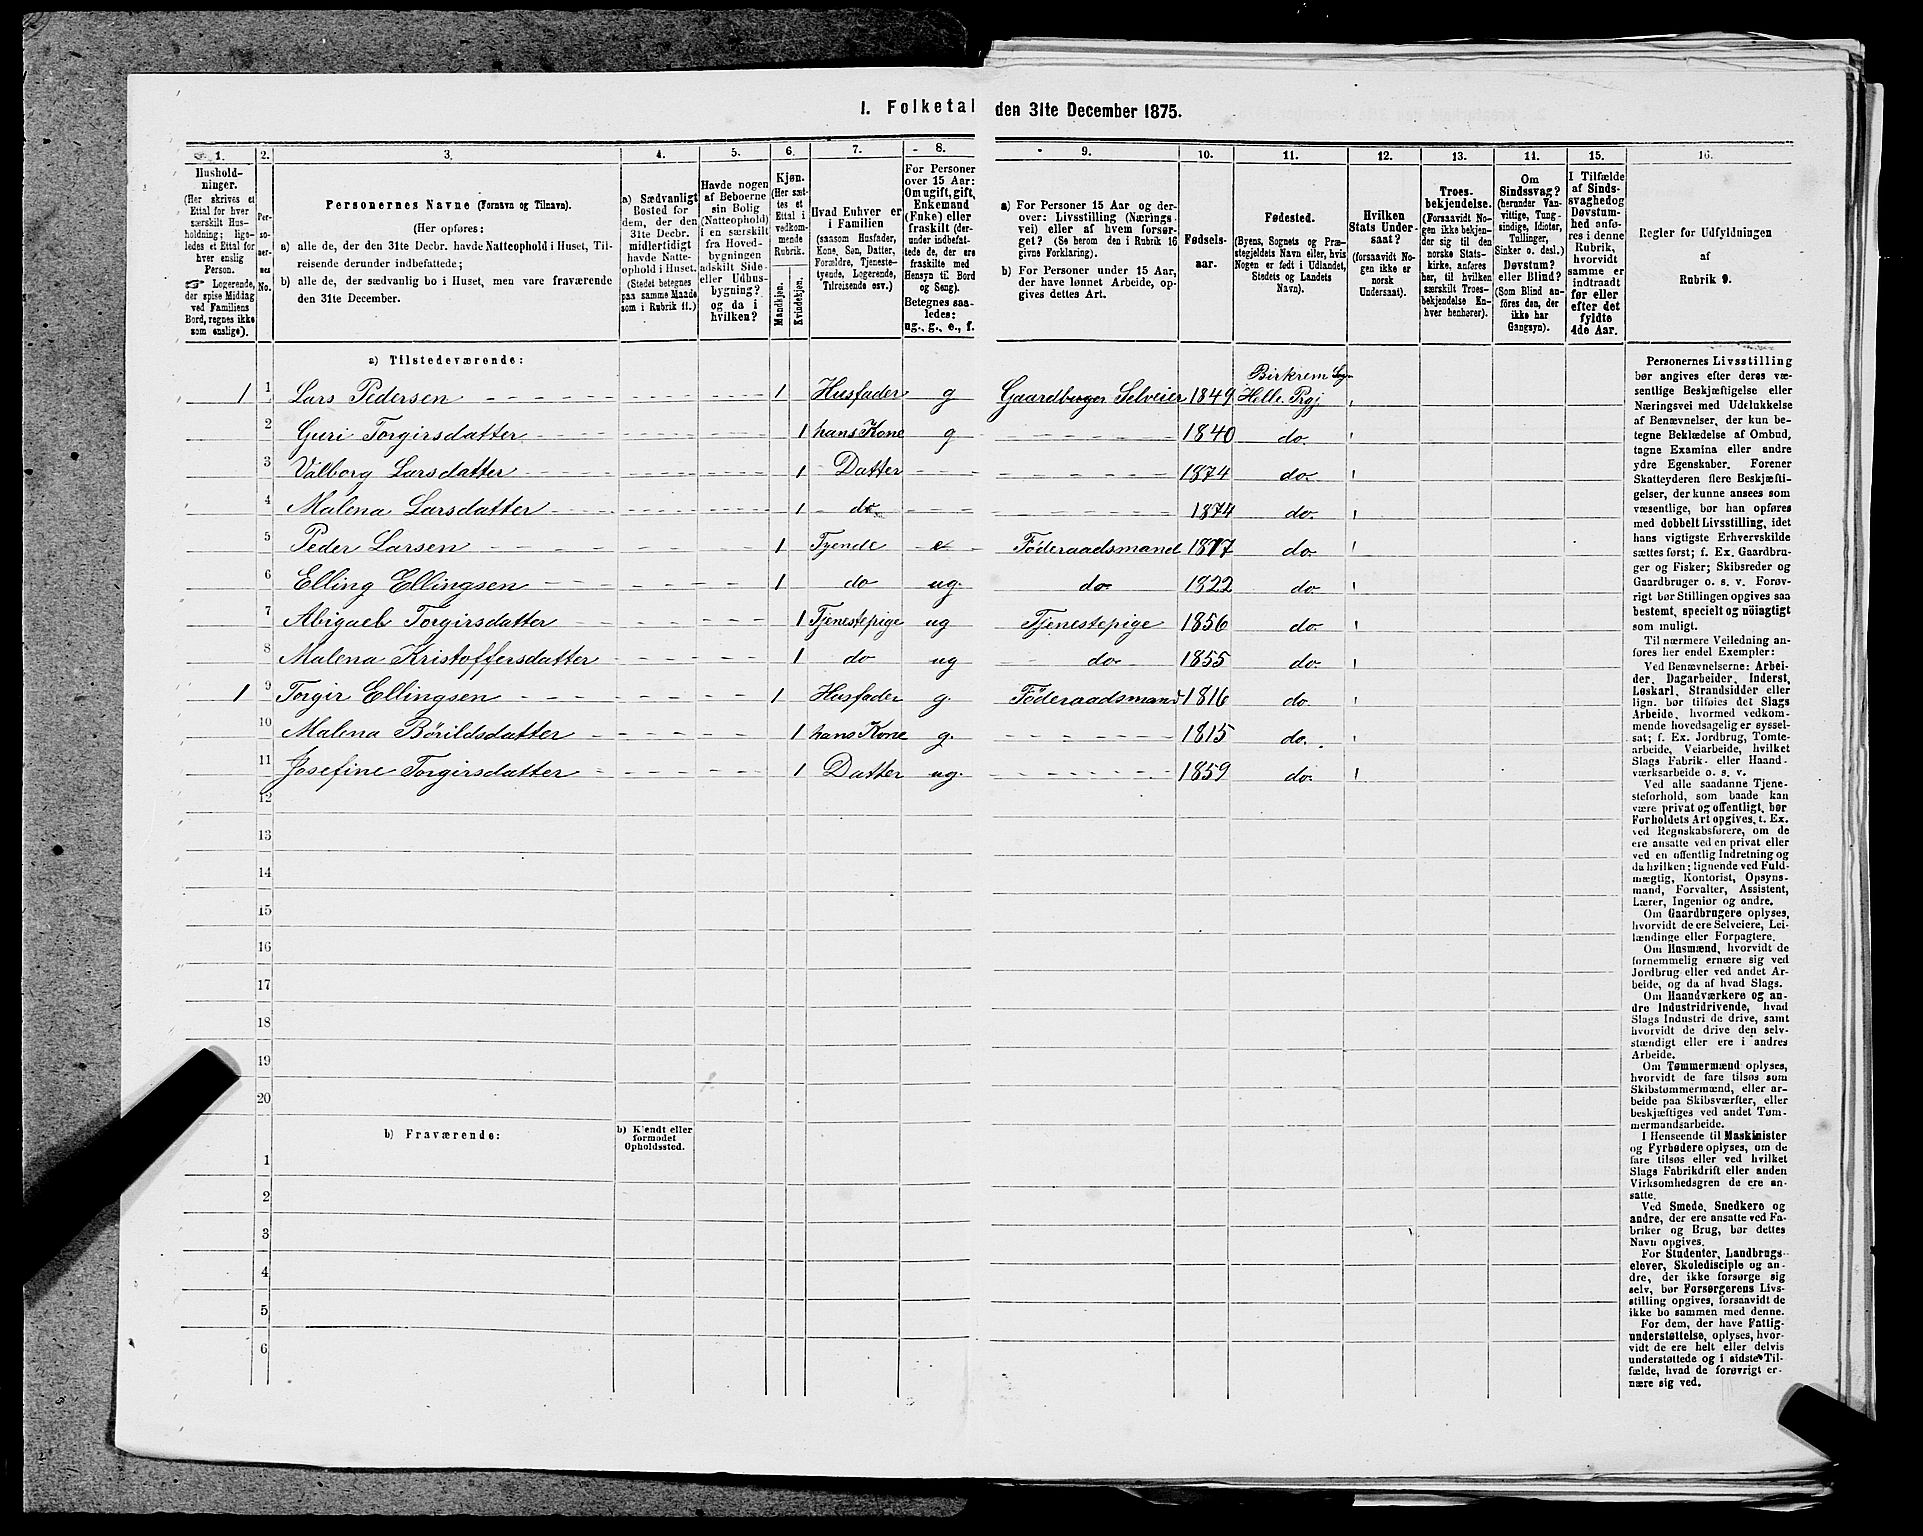 I. Folketal den 31te December 1875.
1. 2. 3. 4. 5. 6. 7. 8. 9. 10. 11. 12. 13. 14. 15. 16.
Hushold-
ninger.
(Her skrives et
Ettal for hver
særskilt Hus-
holdning; lige-
ledes et Ettal for
hver enslig
Person.
☞ Logerende,
der spise Middag
ved Familiens
Bord, regnes ikke
som enslige).
Per-
so-
ner-
nes
No.
Personernes Navne (Fornavn og Tilnavn).
(Her opføres:
a) alle de, der den 31te Decbr. havde Natteophold i Huset, Til-
reisende derunder indbefattede;
b) alle de, der sædvanlig bo i Huset, men vare fraværende
den 31te December.
a) Sædvanligt
Bosted for
dem, der den
31te Decbr.
midlertidigt
havde Natte-
ophold i Huset.
(Stedet betegnes
paa samme Maade
som i Rubrik 11.)
Havde nogen
af Beboerne
sin Bolig
(Natteophold)
i en særskilt
fra Hoved-
bygningen
adskilt Side-
eller Udhus-
bygning?
og da i
hvilken?
Kjøn.
(Her sæt-
tes et
Ettal i
vedkom-
mende
Rubrik.
Mandkjøn.
Kvindekjøn.
Hvad Enhver er
i Familien
(saasom Husfader,
Kone, Søn, Datter,
Forældre, Tjeneste-
tyende, Logerende,
Tilreisende osv.)
For Personer
over 15 Aar:
Om ugift, gift,
Enkemand
(Enke) eller
fraskilt (der-
under indbefat-
tede de, der ere
fraskilte med
Hensyn til Bord
og Seng).
Betegnes saa-
ledes:
ug., g., e., f.
a) For Personer 15 Aar og der-
over: Livsstilling (Nærings-
vei) eller af hvem forsør-
get? (Se herom den i Rubrik 16
givne Forklaring).
b) For Personer under 15 Aar,
der have lønnet Arbeide, op-
gives dettes Art.
Fødsels-
aar.
Fødested.
(Byens, Sognets og Præ-
stegjeldets Navn eller, hvis
Nogen er født i Udlandet,
Stedets og Landets
Navn).
Hvilken
Stats Under-
saat?
(forsaavidt No-
gen ikke er
norsk
Undersaat).
Troes-
bekjendelse.
(Forsaavidt No-
gen ikke bekjen-
der sig til den
norske Stats-
kirke, anføres
her, til hvilken
særskilt Troes-
bekjendelse En-
hver henhører).
Om
Sindssvag?
(herunder Van-
vittige, Tung-
sindige, Idioter,
Tullinger,
Sinker o. desl.)
Døvstum?
eller Blind?
(Som Blind an-
føres den, der
ikke har
Gangsyn).
I Tilfælde
af Sinds-
svaghed og
Døvstum-
hed anfø-
res i denne
Rubrik,
hvorvidt
samme er
indtraadt
før eller
efter det
fyldte
4de Aar.
Regler for Udfyldningen
af
Rubrik 9.
a) Tilstedeværende:
Birkrem Sog-
1 1 Lars Pedersen 1 Husfader g Gaardbruger Selveier 1849 Helle. Prgj
2 Guri Torgirsdatter 1 hans Kone g 1840 do.
3 Valborg Larsdatter 1 Datter 1874 do.
4 Malena Larsdatter 1 do. 1874 do.
5 Peder Larsen 1 Tyende e Föderaadsmand 1817 do
6 Elling Ellingsen 1 do ug. do 1822 do.
7 Abigael Torgirsdatter 1 Tjenestepige ug Tjenestepige 1856 do.
8 Malena Kristoffersdatter 1 do ug do 1855 do.
1 9 Torgir Ellingsen 1 Husfader g. Föderaadsmand 1816 do
10 Malena Börildsdatter 1 hans Kone g. 1815 do.
11 Josefine Torgirsdatter 1 Datter ug. 1859 do.
12
13
14
15
16
17
18
19
20
b) Fraværende:
b) Kjendt eller
formodet
Opholdssted.
1
2
3
4
5
6
Personernes Livsstilling
bør angives efter deres væ-
sentlige Beskjæftigelse eller
Næringsvei med Udelukkelse
af Benævnelser, der kun be-
tegne Beklædelse af Ombud,
tagne Examina eller andre
ydre Egenskaber. Forener
Skatteyderen flere Beskjæfti-
gelser, der kunne ansees som
væsentlige, bør han opføres
med dobbelt Livsstilling, idet
hans vigtigste Erhvervskilde
sættes først; f. Ex. Gaardbru-
ger og Fisker; Skibsreder og
Gaardbruger o. s. v. Forøv-
rigt bør Stillingen opgives saa
bestemt, specielt og nöiagtigt
som muligt.
Til nærmere Veiledning an-
føres her endel Exempler:
Ved Benævnelserne: Arbei-
der, Dagarbeider, Inderst,
Løskarl, Strandsidder eller
lign. bør tilføies det Slags
Arbeide, hvormed vedkom-
mende hovedsagelig er syssel-
sat; f. Ex. Jordbrug, Tomte-
arbeide, Veiarbeide, hvilket
Slags Fabrik- eller Haand-
værksarbeide o. s. v.
Ved alle saadanne Tjene-
steforhold, som baade kan
være privat og offentligt, bør
Forholdets Art opgives, t. Ex.
ved Regnskabsførere, om de
ere ansatte ved en privat eller
ved en offentlig Indretning og
da hvilken; lignende ved Fuld-
mægtig, Kontorist, Opsyns-
mand, Forvalter, Assistent,
Lærer, Ingeniør og andre.
Om Gaardbrugere oplyses,
hvorvidt de ere Selveiere, Lei-
lændinge eller Forpagtere.
Om Husmænd, hvorvidt de
fornemmelig ernære sig ved
Jordbrug eller ved andet Ar-
beide, og da af hvad Slags.
Om Haandværkere og an-
dre Industridrivende, hvad
Slags Industri de drive, samt
hvorvidt de drive den selv-
stændigt eller ere i andres
Arbeide.
Om Tømmermænd oplyses,
hvorvidt de fare tilsøs som
Skibstømmermænd, eller ar-
beide paa Skibsværfter, eller
beskjæftiges ved andet Tøm-
mermandsarbeide.
I Henseende til Maskinister
og Fyrbødere oplyses, om de
fare tilsøs eller ved hvilket
Slags Fabrikdrift eller anden
Virksomhedsgren de ere an-
satte.
Ved Smede, Snedkere og
andre, der ere ansatte ved Fa-
briker og Brug, bør dettes
Navn opgives.
For Studenter, Landbrugs-
elever, Skoledisciple og an-
dre, der ikke forsørge sig
selv, bør Forsørgerens Livs-
stilling opgives, forsaavidt de
ikke bo sammen med denne.
For dem, der have Fattig-
understøttelse, oplyses, hvor-
vidt de ere helt eller delvis
understøttede og i sidste Til-
fælde, hvad de forøvrigt er-
nære sig ved.